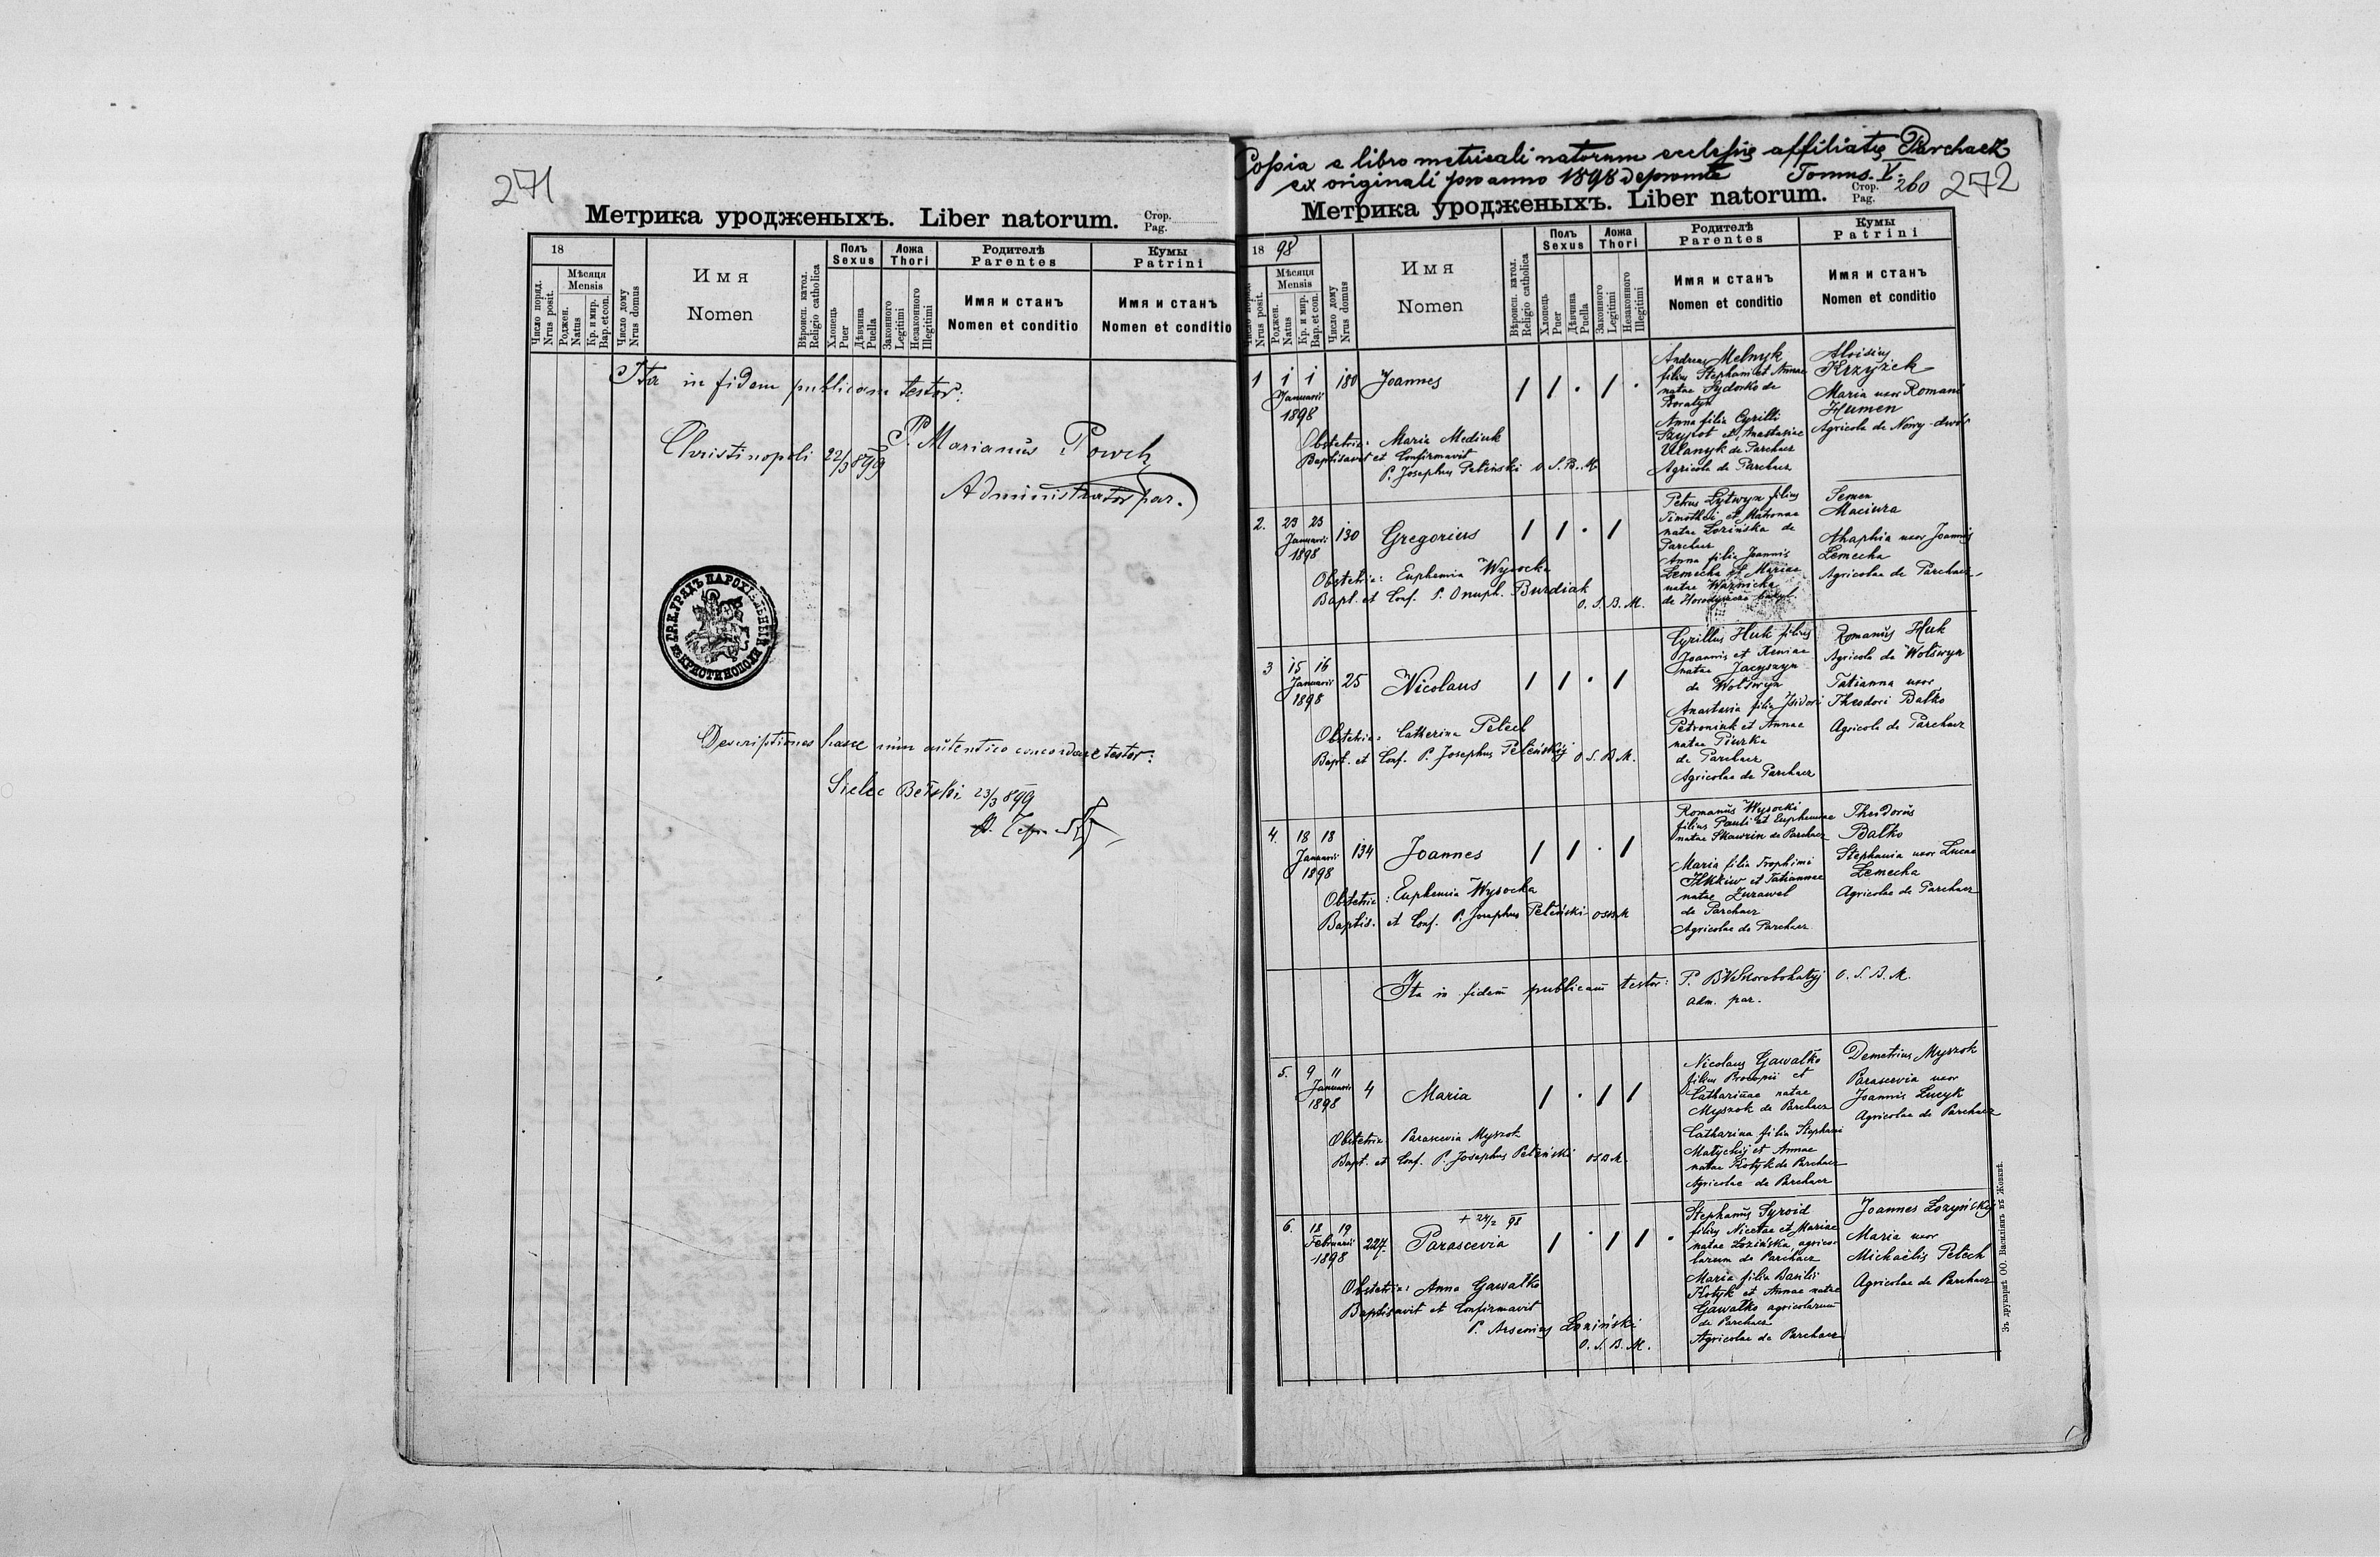 271
Метрика уродженыхъ. Liber natorum. Стор. Pag.
18
Число поряд. Nrus posit.
Мѣсяця Mensis
Роджен. Natus
Кр. и мир. Bap. et con.
Число дому Nrus domus
Имя
Nomen
Вѣроисп. катол. Religio catholica
Полъ Sexus
Хлопець Puer
Дѣвчина Puella
Ложа Thori
Законного Legitimi
Незаконного Illegitimi
Родителѣ Parentes
Имя и станъ
Nomen et conditio
Кумы Patrini
Имя и станъ
Nomen et conditio
Ita in fidem publicam testor:
Christinopoli 22/3 899
P. Marianus Powch
Administrator par.
ГР. К. УРЯДЪ ПАРОХІЯЛЬНЫЙ ВЪ КРИСТИНОПОЛИ
Descriptiones hasce cum autentico concordare testor:
Sielec Bełski 23/3 899
Copia e libro metricali natorum ecclesiæ affiliatæ Parchacz
ex originali pro anno 1898 deprompta Tomus. V.
Метрика уродженыхъ. Liber natorum. Стор. Pag. 260
272
18 98
Число поряд. Nrus posit.
Мѣсяця Mensis
Роджен. Natus
Кр. и мир. Bap. et con.
Число дому Nrus domus
Имя
Nomen
Вѣроисп. катол. Religio catholica
Полъ Sexus
Хлопець Puer
Дѣвчина Puella
Ложа Thori
Законного Legitimi
Незаконного Illegitimi
Родителѣ Parentes
Имя и станъ
Nomen et conditio
Кумы Patrini
Имя и станъ
Nomen et conditio
1 1 1 180 Joannes / / . / .
Januarii
1898
Obstetrix: Maria Mediuk
Baptisavit et Confirmavit
P. Josephus Peleński O. S. B. M.
Andreas Melnyk
filius Stephani et Annae
natae Sydorko de
Boratyn
Anna filia Cyrilli
Szypot et Anastasiae
Ulanyk de Parchacz
Agricola de Parchacz
Aloisius
Krzyżek
Maria uxor Romani
Humen
Agricola de Nowy-dwór
2. 23 23 130 Gregorius / / . /
Januarii
1898
Obstetrix: Euphemia Wysocka
Bapt. et Conf. P. Onuph. Burdiak
O. S. B. M.
Petrus Lytwyn filius
Timothei et Matronae
natae Łozińska de
Parchacz
Anna filia Joannis
Lemecha et Mariae
natae
de
Semen
Maciura
Ahaphia uxor Joannis
Lemecha
Agricolae de Parchacz
3 15 16 25 Nicolaus / / . /
Januarii
1898
Obstetrix: Catherina Pelech
Bapt. et Conf. P. Josephus Peleńskij O. S. B. M.
Cyrillus Huk filius
Joannis et Xeniae
natae Jacyszyn
de Wolswyn
Anastasia filia Isidori
Petroniuk et Annae
natae Piurka
de Parchacz
Agricolae de Parchacz
Romanus Huk
Agricola de Wolswyn
Tatianna uxor
Theodori Bałko
Agricola de Parchacz
4. 18 18 134 Joannes / / . /
Januarii
1898
Obstetrix: Euphemia Wysocka
Baptis. et Conf. P. Josephus Peleński OSBM
Romanus Wysocki
filius Pauli et Euphemiae
natae Skawzin de Parchacz
Maria filia Trophimi
Ilkkiw et Tatiannae
natae Zurawel
de Parchacz
Agricolae de Parchacz
Theodorus
Bałko
Stephania uxor Lucae
Lemecha
Agricolae de Parchacz
Ita in fidem publicam testor: P. BWSkorobohatyj O. S. B. M.
adm. par.
5. 9 11 4 Maria / . / /
Januarii
1898
Obstetrix: Parascevia Myszok
Bapt. et Conf. P. Josephus Peleński OSBM
Nicolaus Gawałko
filius Procopii et
Catharinae natae
Myszok de Parchacz
Catharina filia Stephani
Matyckij et Annae
natae Kotyk de Parchacz
Agricolae de Parchacz
Demetrius Myszok
Parascevia uxor
Joannis Lucyk
Agricolae de Parchacz
6. 18 19 227. Parascevia / . / / .
+ 24/2 98
Februarii
1898
Obstetrix: Anna Gawałko
Baptisavit et Confirmavit
P. Arsenius Łoziński
O. S. B. M.
Stephanus Syroid
filius Nicetae et Mariae
natae Łozińska agrico-
larum de Parchacz
Maria filia Basilii
Kotyk et Annae natae
Gawałko agricolarum
de Parchacz
Agricolae de Parchacz
Joannes Łozyńskij
Maria uxor
Michaelis Pelech
Agricolae de Parchacz
Зъ друкарнѣ ОО. Василіянъ въ Жовквѣ.